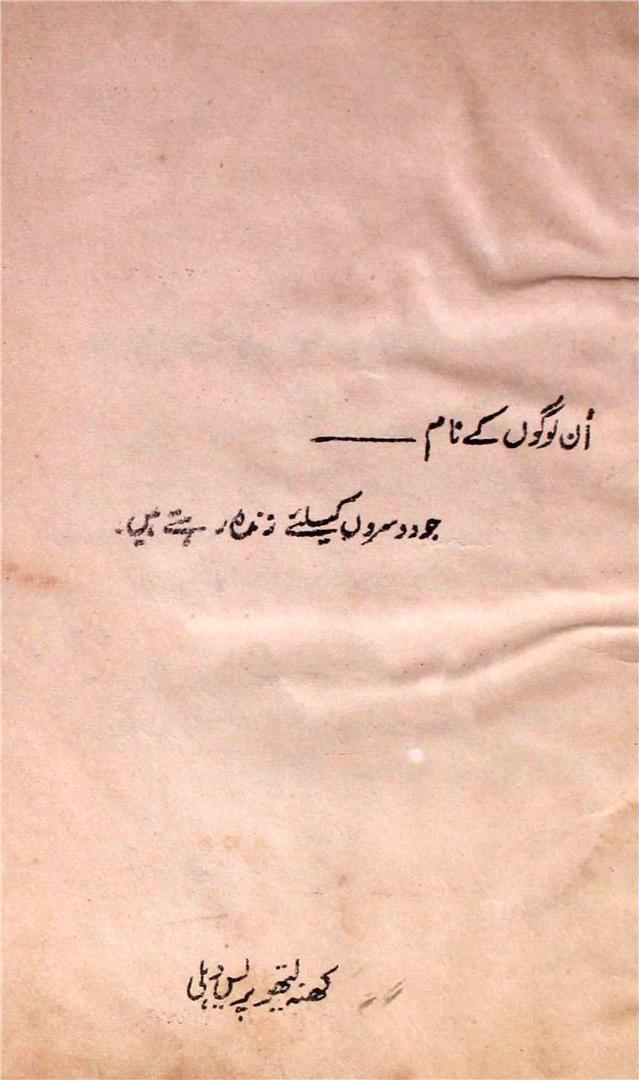 اُن لوگوں کے نام ———
جو دوسروں کیلئے زندہ رہتے ہیں۔
کھنہ لیتھو پریس دہلی